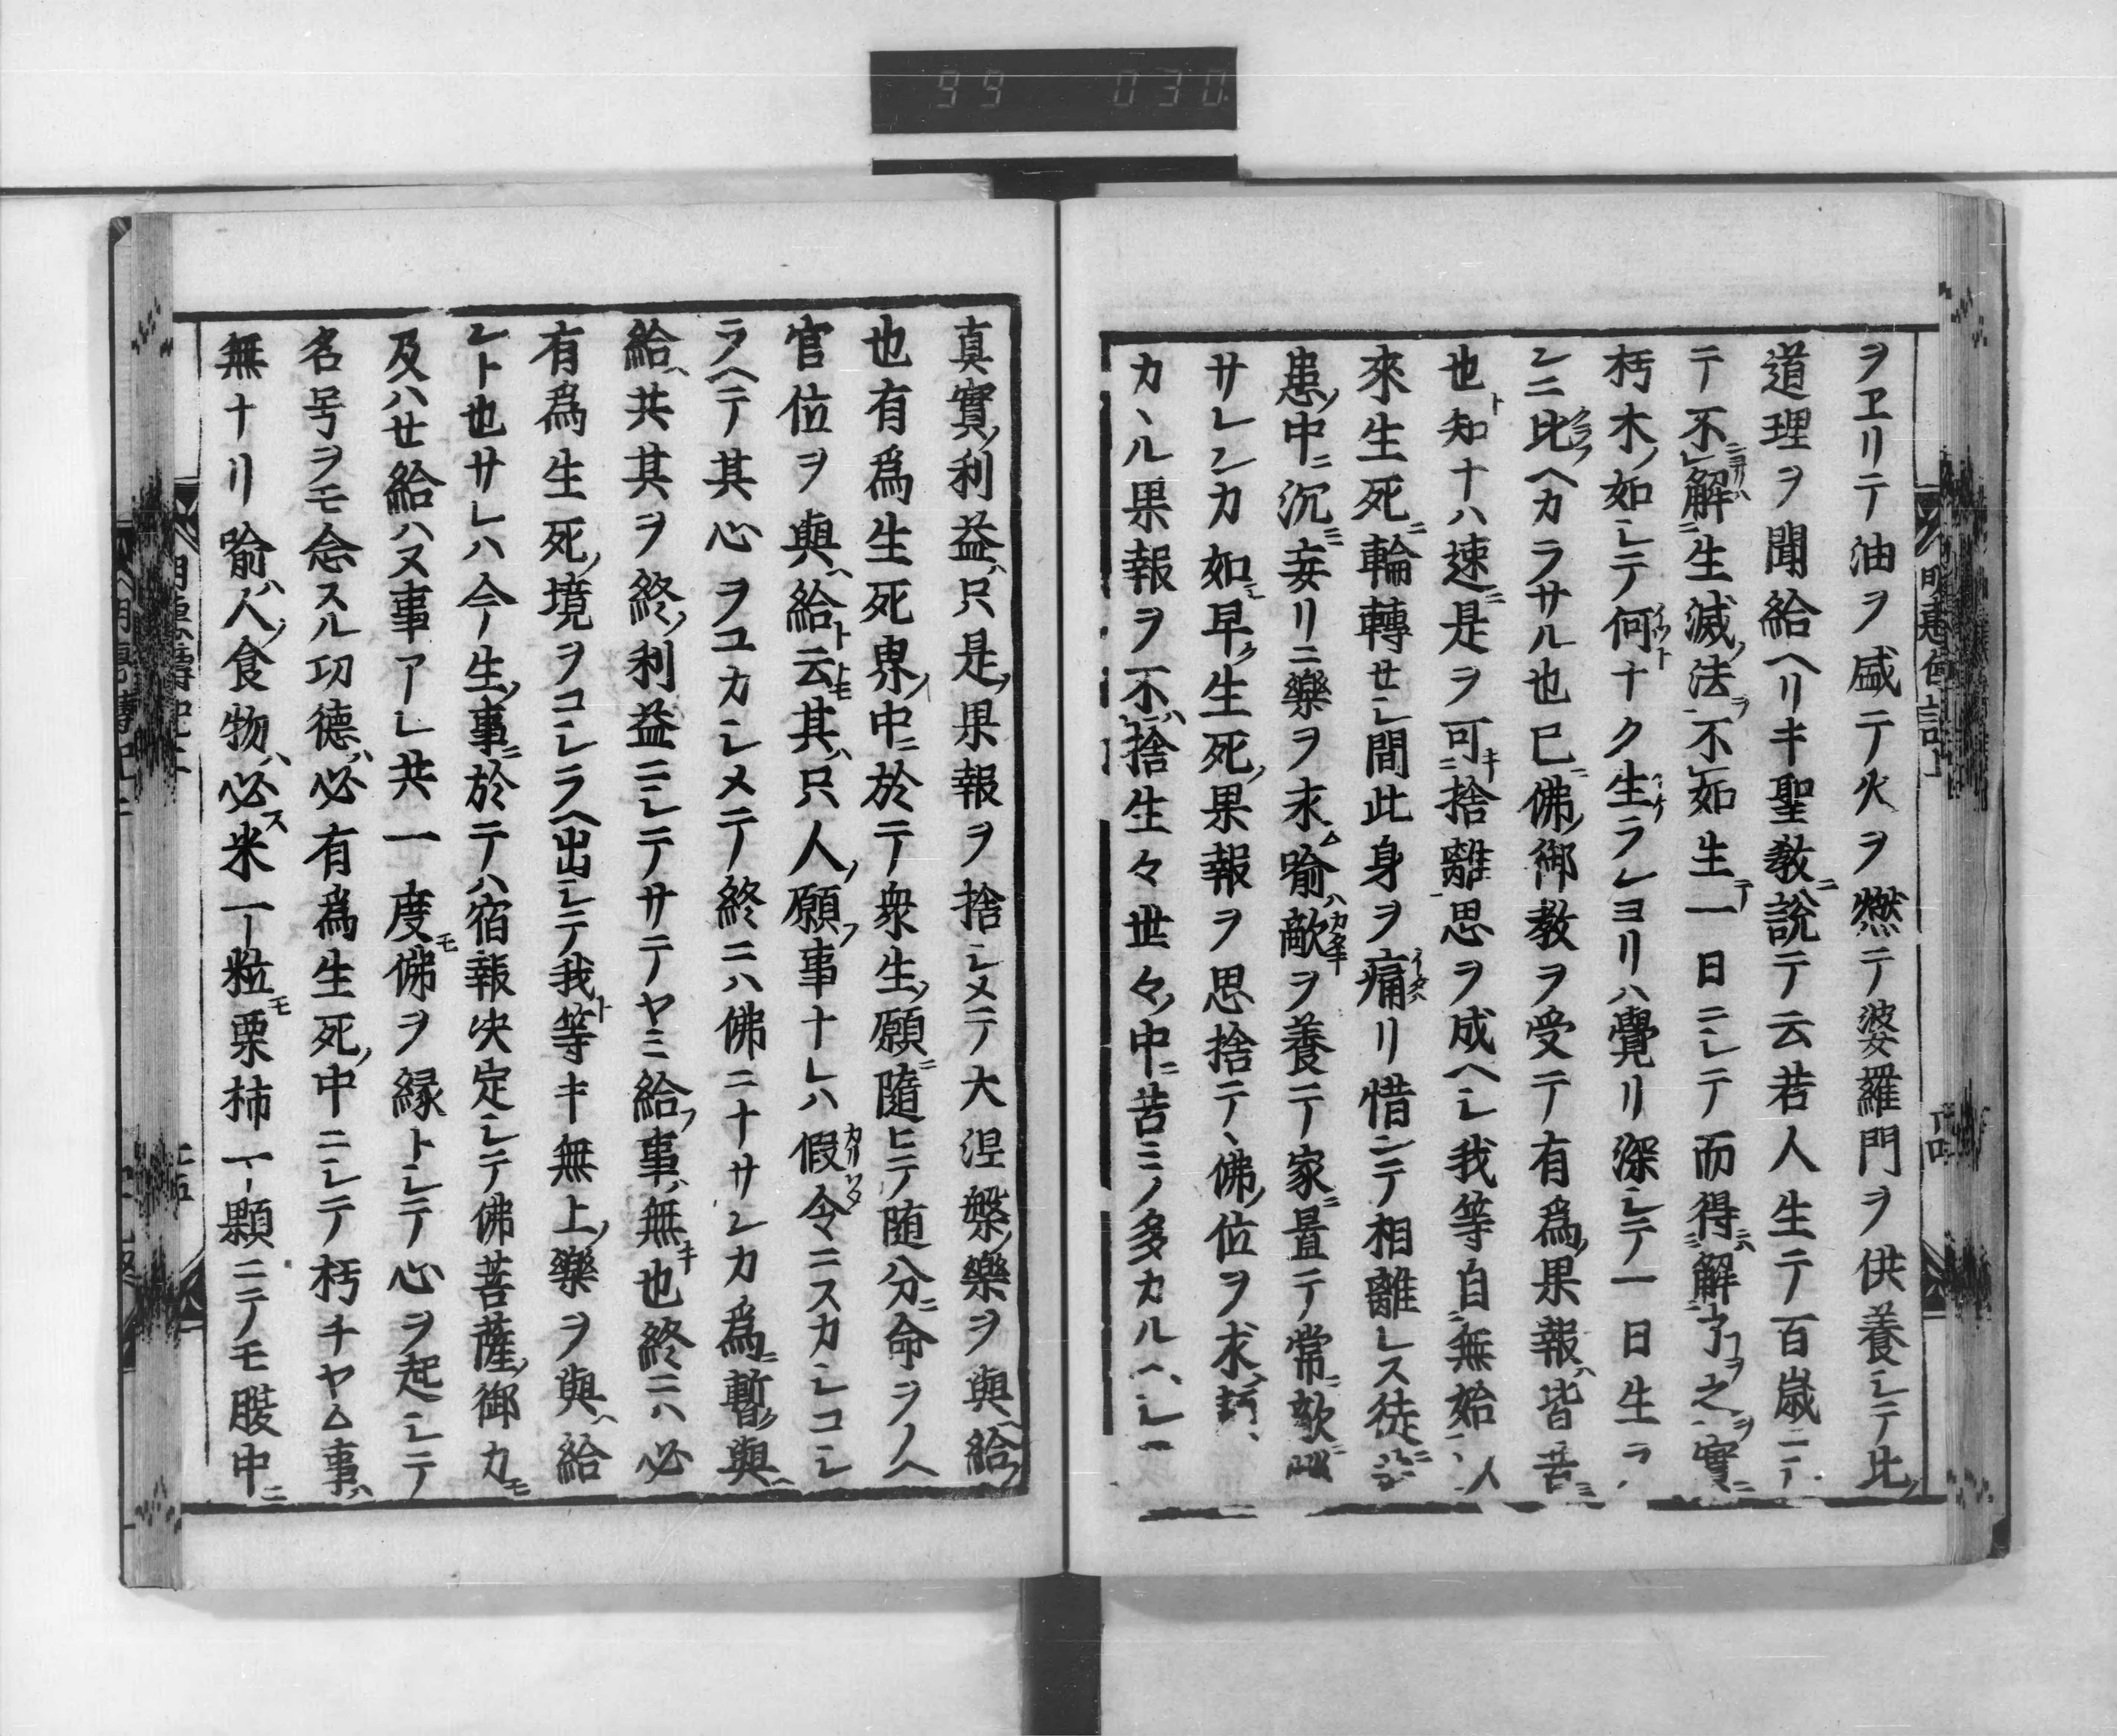 99 030
ヲヱリテ油ヲ盛テ火ヲ燃テ婆羅門ヲ供養シテ比ノ
道理ヲ聞給ヘリキ聖教ニ説テ云若人生テ百歳ニテ
テ不解ニ生滅ノ法ヲ不如生テ一日ニシテ而得ニハ解了之ヲ實ニ
朽木ノ如シテ何トナク生ラレヨリハ覺リ深シテ一日生ラ
シニ比ヘカラサル也已ニ佛ノ御教ヲ受テ有為ノ果報ハ皆苦ミ
也ト知ナハ速ニ是ヲ可キ捨離思ヲ成ヘシ我等自無始
來生死ニ輪轉セシ間此身ヲ痛リ惜シテ相離レス徒ニ
患ノ中ニ沉ミ妄リニ樂ヲ求ム喻ハ敵ヲ養テ家ニ置テ常ニ
サレシカ如ニ早ク生死ノ果報ヲ思捨テヽ佛ノ位ヲ求
カヽル果報ヲ不ハ捨生々世々ノ中ニ苦ミノ多カルヘシ
真實ノ利益ハ只是ノ果報ヲ捨シメテ大涅槃ノ樂ヲ與ヘ給フ
也有為生死界ノ中ニ於テ衆生ノ願ニ隨ヒテ随分ニ命ヲノヘ
官位ヲ與ヘ給ト云トモ其ハ只人ノ願フ事ナレハ假令ニスカシコシ
ラヘテ其心ヲユカシメテ終ニハ佛ニナサシカ為ニ暫ク與ヘ
給ヘ共其ヲ終ノ利益ニシテサテヤミ給フ事ハ無キ也終ニハ必
有為生死ノ境ヲコシラヘ出シテ我ト等キ無上ノ樂ヲ與ヘ給
シト也サレハ今生ノ事ニ於テハ宿報決定シテ佛菩薩ノ御力モ
及ハセ給ハヌ事アレ共一度モ佛ヲ縁トシテ心ヲ起シテ
名号ヲモ念スル功德ハ必有為生死ノ中ニシテ朽チヤム事ハ
無ナリ喻ハ人ノ食物ハ必ス米一粒モ栗柿一顆ニテモ腹中ニ